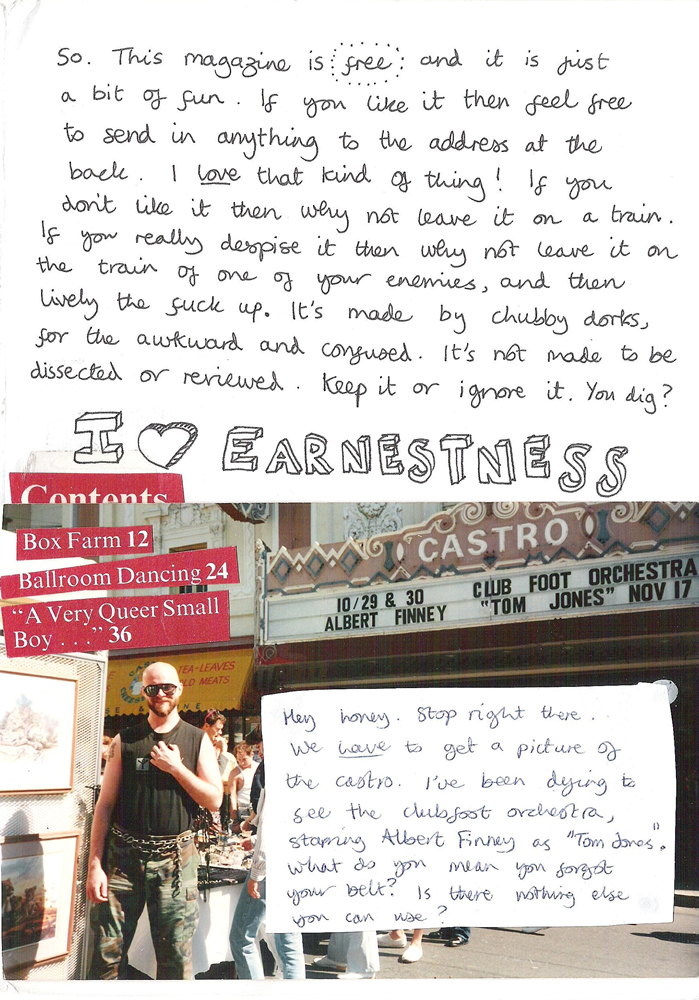 So. This magazine is free and it is just
a bit of fun. If you like it then feel free
to send in anything to the address at the
back. I love that kind of thing! If you
don't like it then why not leave it on a train.
If you really despise it then why not leave it on
the train of one of your enemies, and then
lively the fuck up. It's made by chubby dorks,
for the awkward and confused. It's not made to be
dissected or reviewed. Keep it or ignore it. You dig?
I ♡ EARNESTNESS
Contents
Box Farm 12
Ballroom Dancing 24
"A Very Queer Small
Boy . . ." 36
CASTRO
10/29 & 30
ALBERT FINNEY
CLUB FOOT ORCHESTRA
"TOM JONES" NOV 17
TEA-LEAVES
LD MEATS
Hey honey. Stop right there..
We have to get a picture of
the castro. I've been dying to
see the clubfoot orchestra,
starring Albert Finney as "Tom Jones".
What do you mean you forgot
your belt? Is there nothing else
you can use?